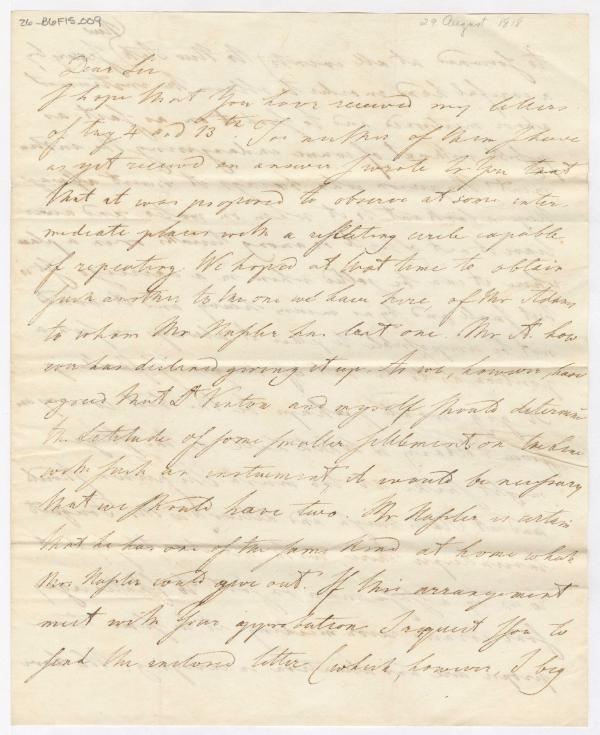 26-B6F15-009
29 August 1818
Dear Sir
I hope that You have received my letters
of Aug 4 and 13th. To neither of them I have
as yet received an answer. I wrote to You
that it was proposed to observe at some inter
mediate places with a reflecting circle capable
of repeating. We hoped at that time to obtain
such another to the one we have here, of Mr Adams
to whom Mr Hassler has lent one. Mr A. how
ever has declined giving it up. As we, however, have
agreed that Dr and myself should determine
the Latitude of some smaller settlements on the
with such an instrument it would be necessary
that we should have two. Mr Hassler is certain
that he has one of the same kind at home which
Mrs Hassler could give out. If this arrangement
meet with Your approbation I request You to
send the enclosed letter (which however, I beg